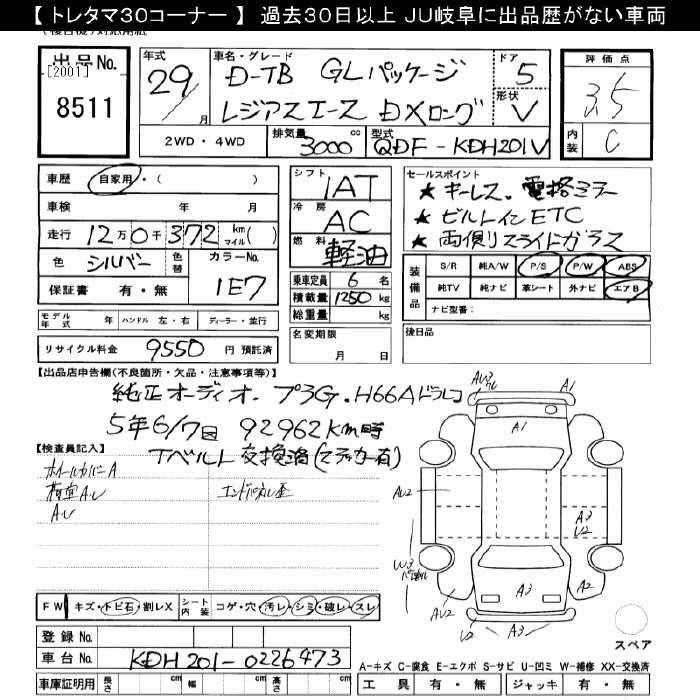 【 トレタマ30コーナー 】 過去30日以上 JU岐阜に出品歴がない車両
出品No.
[2001]
8511
年式
29/月
車名・グレード
D-TB GLパッケージ
レジアスエース DXロング
ドア
5
形状
V
2WD・4WD
排気量 3000 cc
型式 QDF-KDH201V
評価点
3.5
内装 C
車歴 自家用・( )
車検 年 月
走行 12万0千372 km マイル( )
色 シルバー 色替 カラーNo. 1E7
保証書 有・無
シフト 1AT
冷房 AC
燃料 軽油
乗車定員 6 名
積載量 1250 kg
総重量 kg
セールスポイント
★ キーレス、電格ミラー
★ ビルトインETC
★ 両側スライドガラス
装備品
S/R 純A/W P/S P/W ABS
純TV 純ナビ 革シート 外ナビ エアB
ナビ型番:
モデル年式 年 ハンドル 左・右 ディーラー・並行
リサイクル料金 9550 円 預託済
名変期限
月 日
後日品
【出品店申告欄(不良箇所・欠品・注意事項等)】
純正オーディオ. プ3G.H66Aドラレコ
5年6/7日 92962km時
Tベルト交換済(ステッカー有)
【検査員記入】
ホイールカバーA
荷室A.U
A.U
F W キズ・トビ石・割レX シート内装 コゲ・穴・汚レ・シミ・破レ・スレ
登録No.
車台No. KDH201-0226473
車庫証明用 長さ cm 幅 cm 高さ cm
A1
A1
AU2
A3
U2
W3
AU2
A3
A2
U2
A3
スペア
A-キズ C-腐食 E-エクボ S-サビ U-凹ミ W-補修 XX-交換済
工具 有・無 ジャッキ 有・無